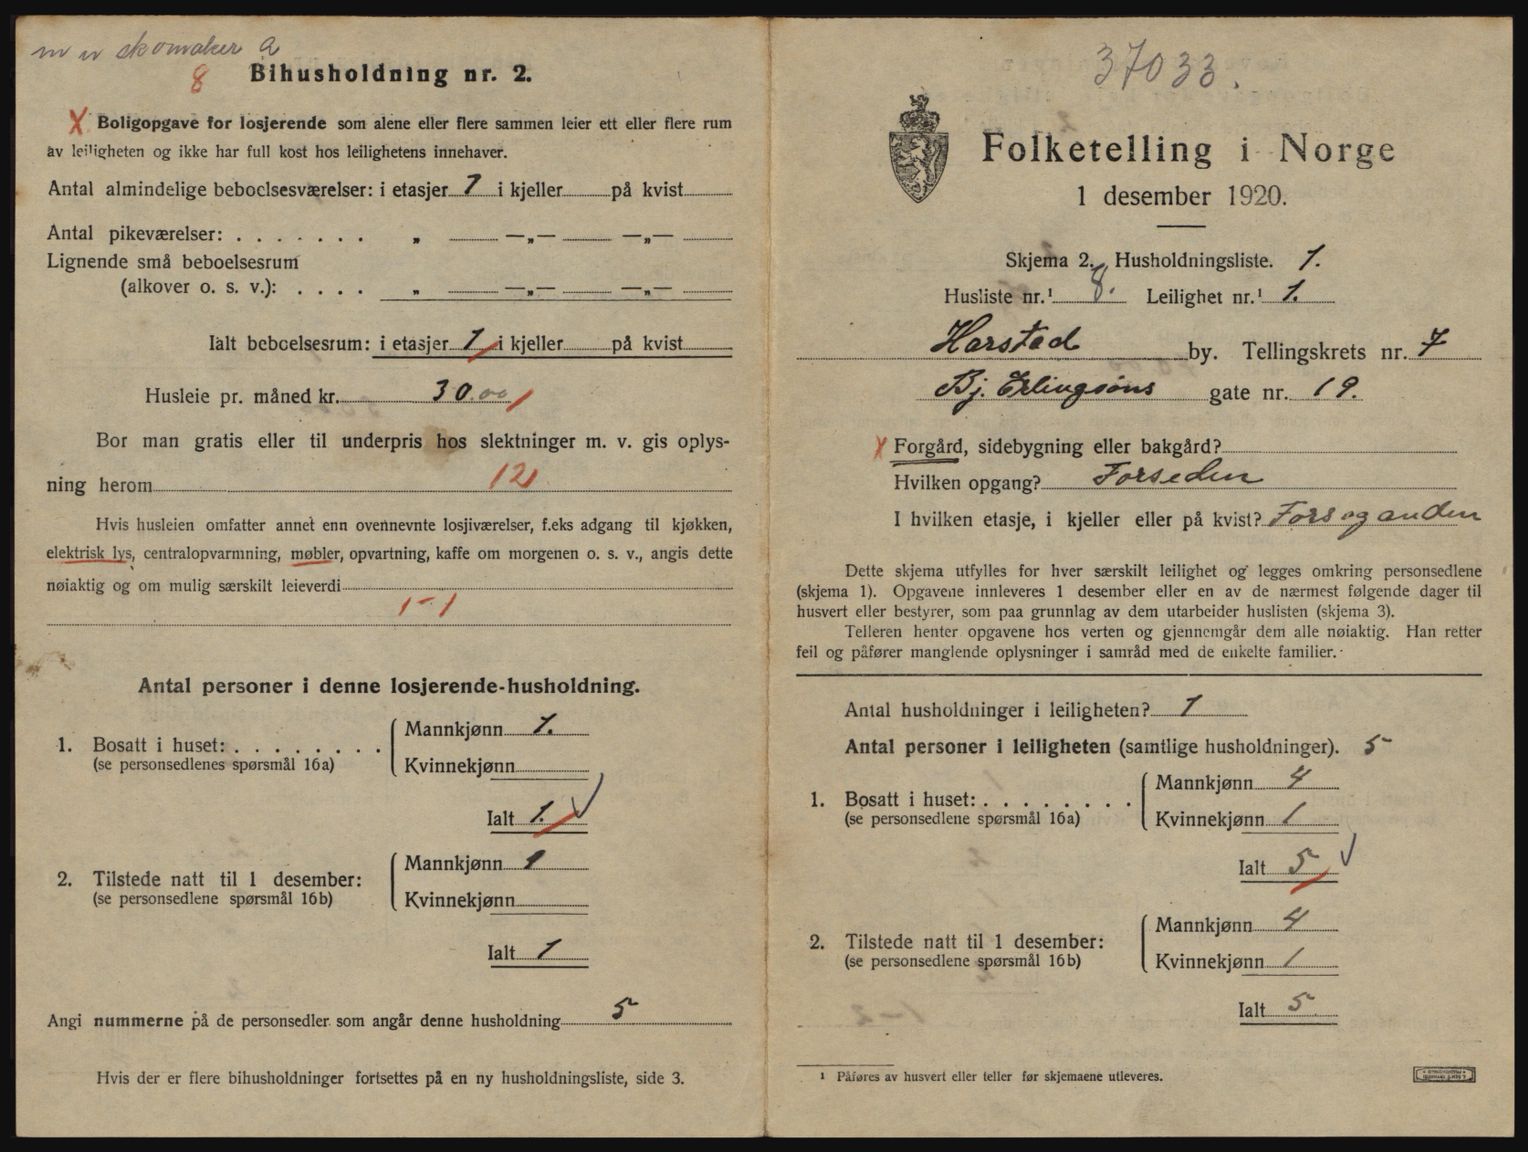 m v skomaker a
8
Bihusholdning nr. 2.
X Boligopgave for losjerende som alene eller flere sammen leier ett eller flere rum
av leiligheten og ikke har full kost hos leilighetens innehaver.
Antal almindelige beboelsesværelser: i etasjer 1 i kjeller på kvist
Antal pikeværelser: . . . . . . . „ —„— —„—
Lignende små beboelsesrum
(alkover o. s. v.): . . . . „ —„— —„—
Ialt beboelsesrum: i etasjer 1 i kjeller på kvist
Husleie pr. måned kr. 30.00
Bor man gratis eller til underpris hos slektninger m. v. gis oplys-
ning herom 12
Hvis husleien omfatter annet enn ovennevnte losjiværelser, f.eks adgang til kjøkken,
elektrisk lys, centralopvarmning, møbler, opvartning, kaffe om morgenen o. s. v., angis dette
nøiaktig og om mulig særskilt leieverdi
1-1
Antal personer i denne losjerende-husholdning.
1. Bosatt i huset: . . . . . . . .
(se personsedlenes spørsmål 16a)
Mannkjønn 1.
Kvinnekjønn
Ialt 1.
2. Tilstede natt til 1 desember:
(se personsedlene spørsmål 16b)
Mannkjønn 1
Kvinnekjønn
Ialt 1
Angi nummerne på de personsedler som angår denne husholdning 5
Hvis der er flere bihusholdninger fortsettes på en ny husholdningsliste, side 3.
37033.
Folketelling i Norge
1 desember 1920.
Skjema 2. Husholdningsliste. 1.
Husliste nr.¹ 8. Leilighet nr.¹ 1.
Harstad by. Tellingskrets nr. 7
Bj. Erlingsøns gate nr. 19.
X Forgård, sidebygning eller bakgård?
Hvilken opgang? Forseden
I hvilken etasje, i kjeller eller på kvist? Førs og anden
Dette skjema utfylles for hver særskilt leilighet og legges omkring personsedlene
(skjema 1). Opgavene innleveres 1 desember eller en av de nærmest følgende dager til
husvert eller bestyrer, som paa grunnlag av dem utarbeider huslisten (skjema 3).
Telleren henter opgavene hos verten og gjennemgår dem alle nøiaktig. Han retter
feil og påfører manglende oplysninger i samråd med de enkelte familier.
Antal husholdninger i leiligheten? 1
Antal personer i leiligheten (samtlige husholdninger). 5
1. Bosatt i huset: . . . . . . . .
(se personsedlene spørsmål 16a)
Mannkjønn 4
Kvinnekjønn 1
Ialt 5
2. Tilstede natt til 1 desember:
(se personsedlene spørsmål 16b)
Mannkjønn 4
Kvinnekjønn 1
Ialt 5.
¹ Påføres av husvert eller teller før skjemaene utleveres.